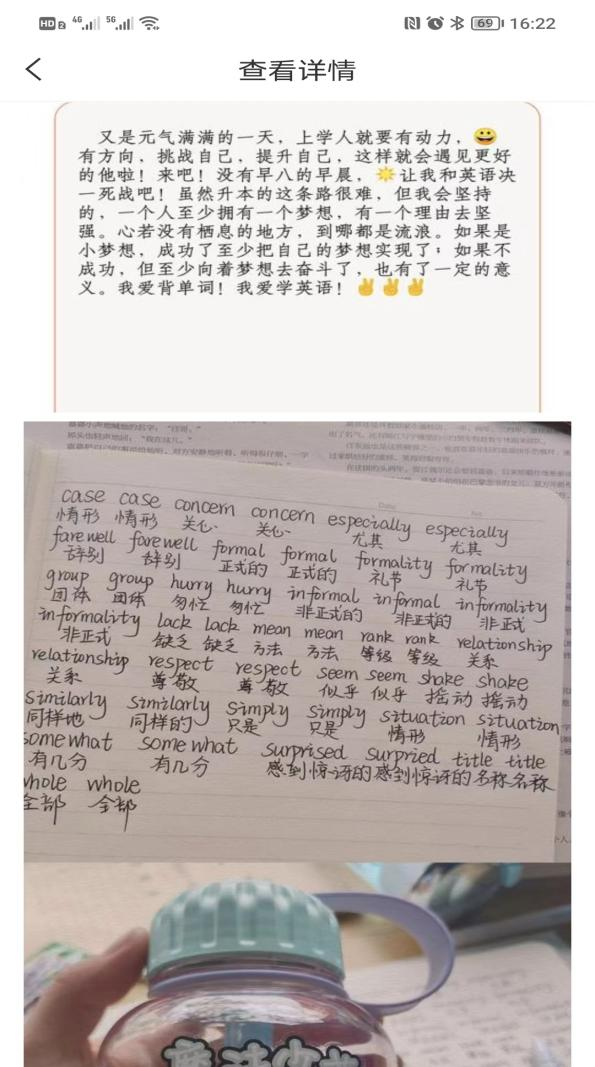 HD 2 4G 5G 69 16:22
查看详情
又是元气满满的一天，上学人就要有动力，😀
有方向，挑战自己，提升自己，这样就会遇见更好
的他啦！来吧！没有早八的早晨，☀️让我和英语决
一死战吧！虽然升本的这条路很难，但我会坚持
的，一个人至少拥有一个梦想，有一个理由去坚
强。心若没有栖息的地方，到哪都是流浪。如果是
小梦想，成功了至少把自己的梦想实现了；如果不
成功，但至少向着梦想去奋斗了，也有了一定的意
义。我爱背单词！我爱学英语！✌️✌️✌️
case case concern concern especially especially
情形 情形 关心 关心 尤其 尤其
farewell farewell formal formal formality formality
辞别 辞别 正式的 正式的 礼节 礼节
group group hurry hurry informal informal informality
团体 团体 匆忙 匆忙 非正式的 非正式的 非正式
informality lack lack mean mean rank rank relationship
非正式 缺乏 缺乏 方法 方法 等级 等级 关系
relationship respect respect seem seem shake shake
关系 尊敬 尊敬 似乎 似乎 摇动 摇动
similarly similarly simply simply situation situation
同样地 同样的 只是 只是 情形 情形
somewhat somewhat surprised surpried title title
有几分 有几分 感到惊讶的 感到惊讶的 名称 名称
whole whole
全部 全部